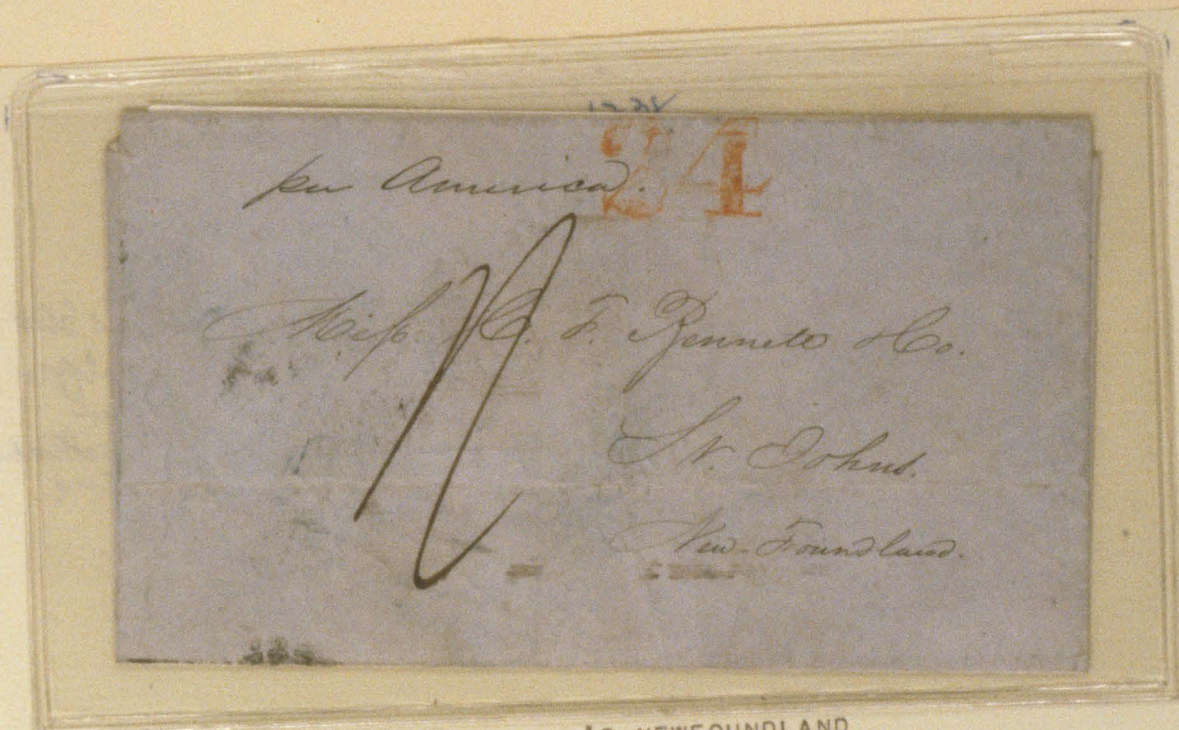 24
per America.
Mess. C. F. Bennett & Co.
St. Johns.
New-Foundland.
NEWFOUNDLAND